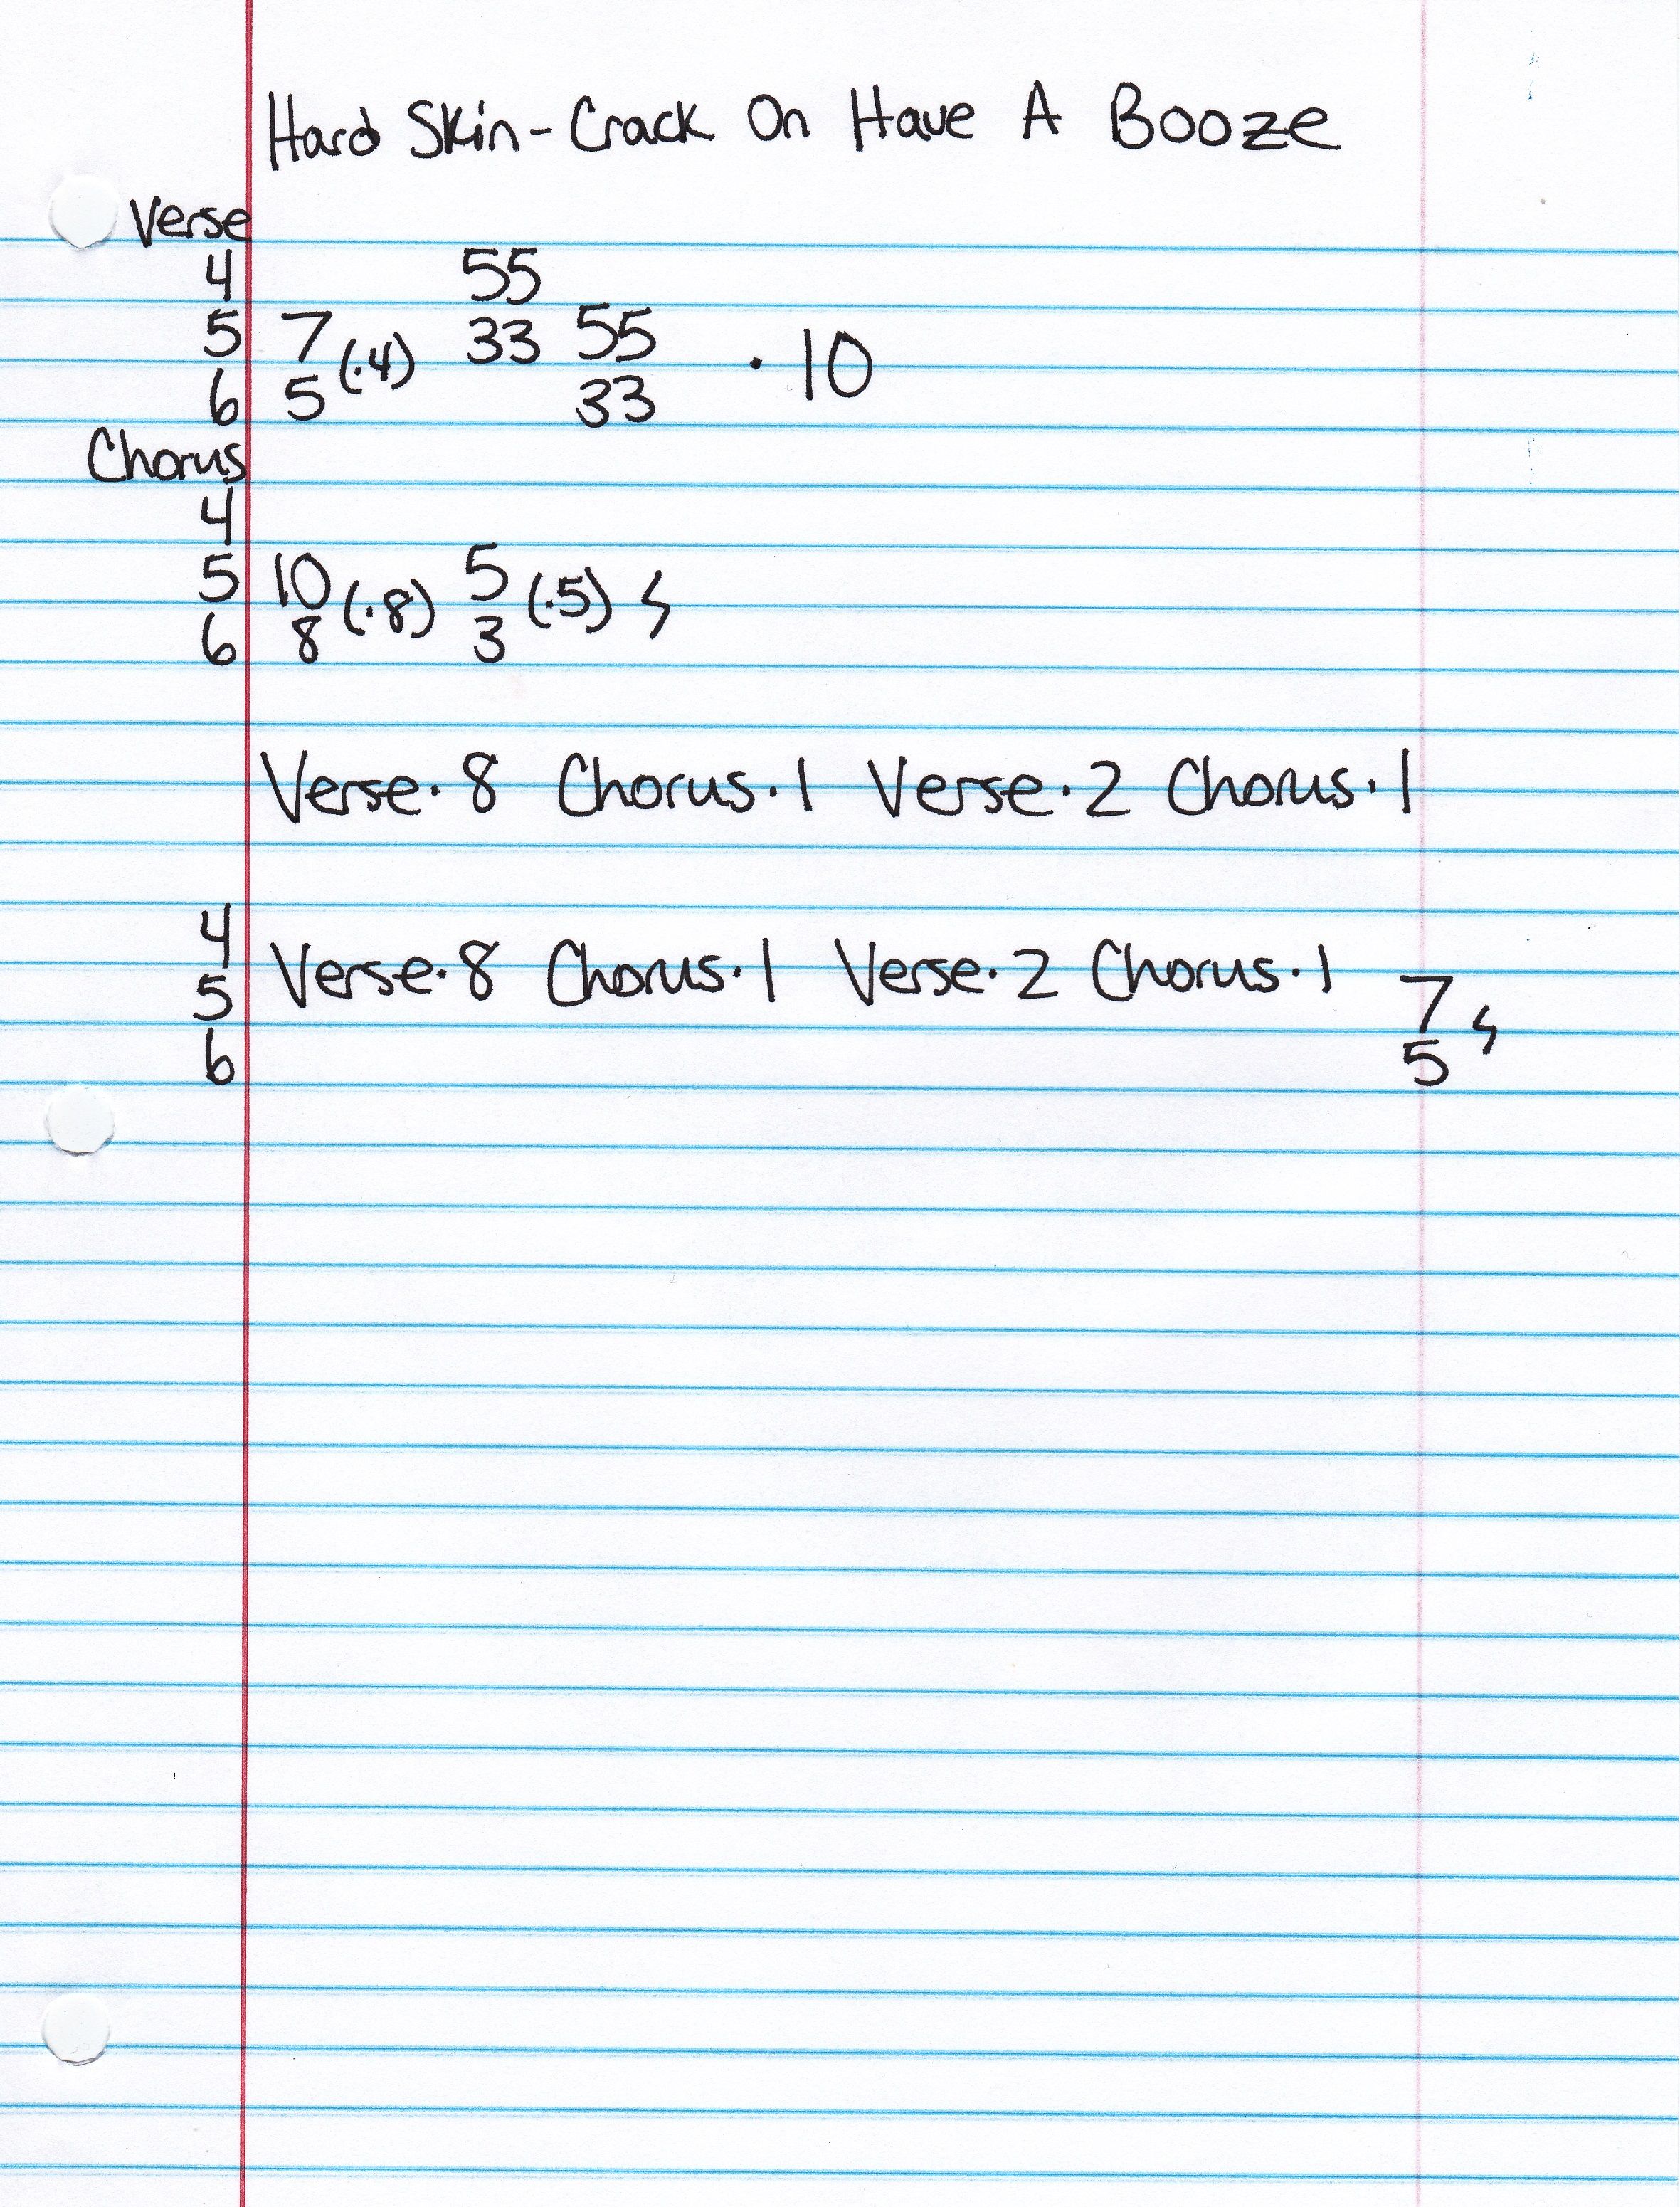 Hard Skin - Crack On Have A Booze
Verse
4 55
5 7 (·4) 33 55 · 10
6 5 33
Chorus
4
5 10 (·8) 5 (·5) ϟ
6 8 3
Verse·8 Chorus·1 Verse·2 Chorus·1
4
5 Verse·8 Chorus·1 Verse·2 Chorus·1 7 ϟ
6 5